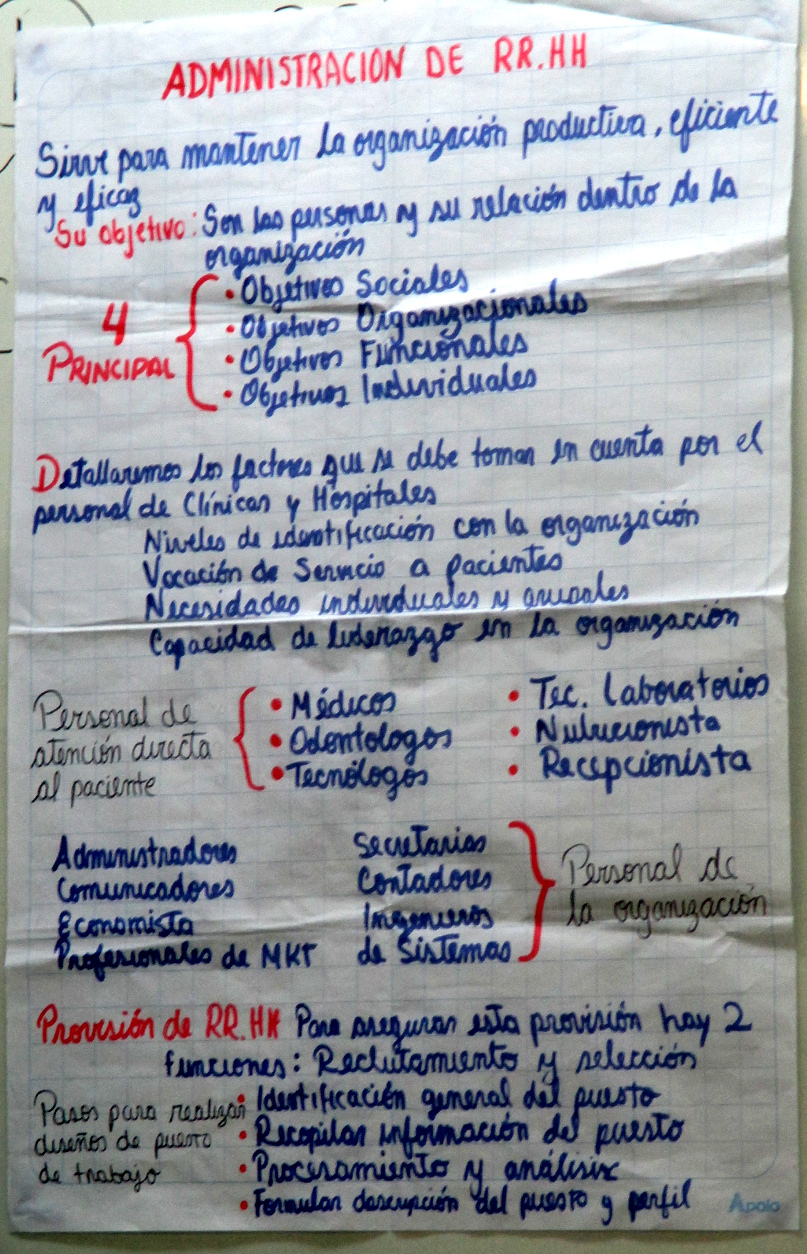 ADMINISTRACION DE RR.HH
Sirve para mantener la organización productiva, eficiente
y eficaz
Su objetivo: Son las personas y su relación dentro de la
organización
4
PRINCIPAL
• Objetivos Sociales
• Objetivos Organizacionales
• Objetivos Funcionales
• Objetivos Individuales
Detallaremos los factores que se debe tomar en cuenta por el
personal de Clínicas y Hospitales
Niveles de identificación con la organización
Vocación de Servicio a pacientes
Necesidades individuales y grupales
Capacidad de liderazgo en la organización
Personal de
atención directa
al paciente
• Médicos
• Odontologos
• Tecnólogos
• Tec. Laboratorios
• Nutricionista
• Recepcionista
Administradores
Comunicadores
Economista
Profesionales de MKT
Secretarias
Contadores
Ingenieros
de Sistemas
Personal de
la organización
Provisión de RR.HH Para asegurar esta provisión hay 2
funciones: Reclutamiento y selección
Pasos para realizar
diseños de puesto
de trabajo
• Identificación general del puesto
• Recopilar información del puesto
• Procesamiento y análisis
• Formular descripción del puesto y perfil
Apolo